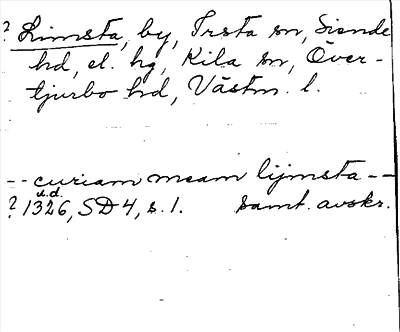 ? Limsta, by, Irsta sn, Siende
hd, el. hg, Kila sn, Över-
tjurbo hd, Västm. l.
-- curiam meam lijmsta --
u.d.
? 1326, SD 4, s. 1. samt. avskr.